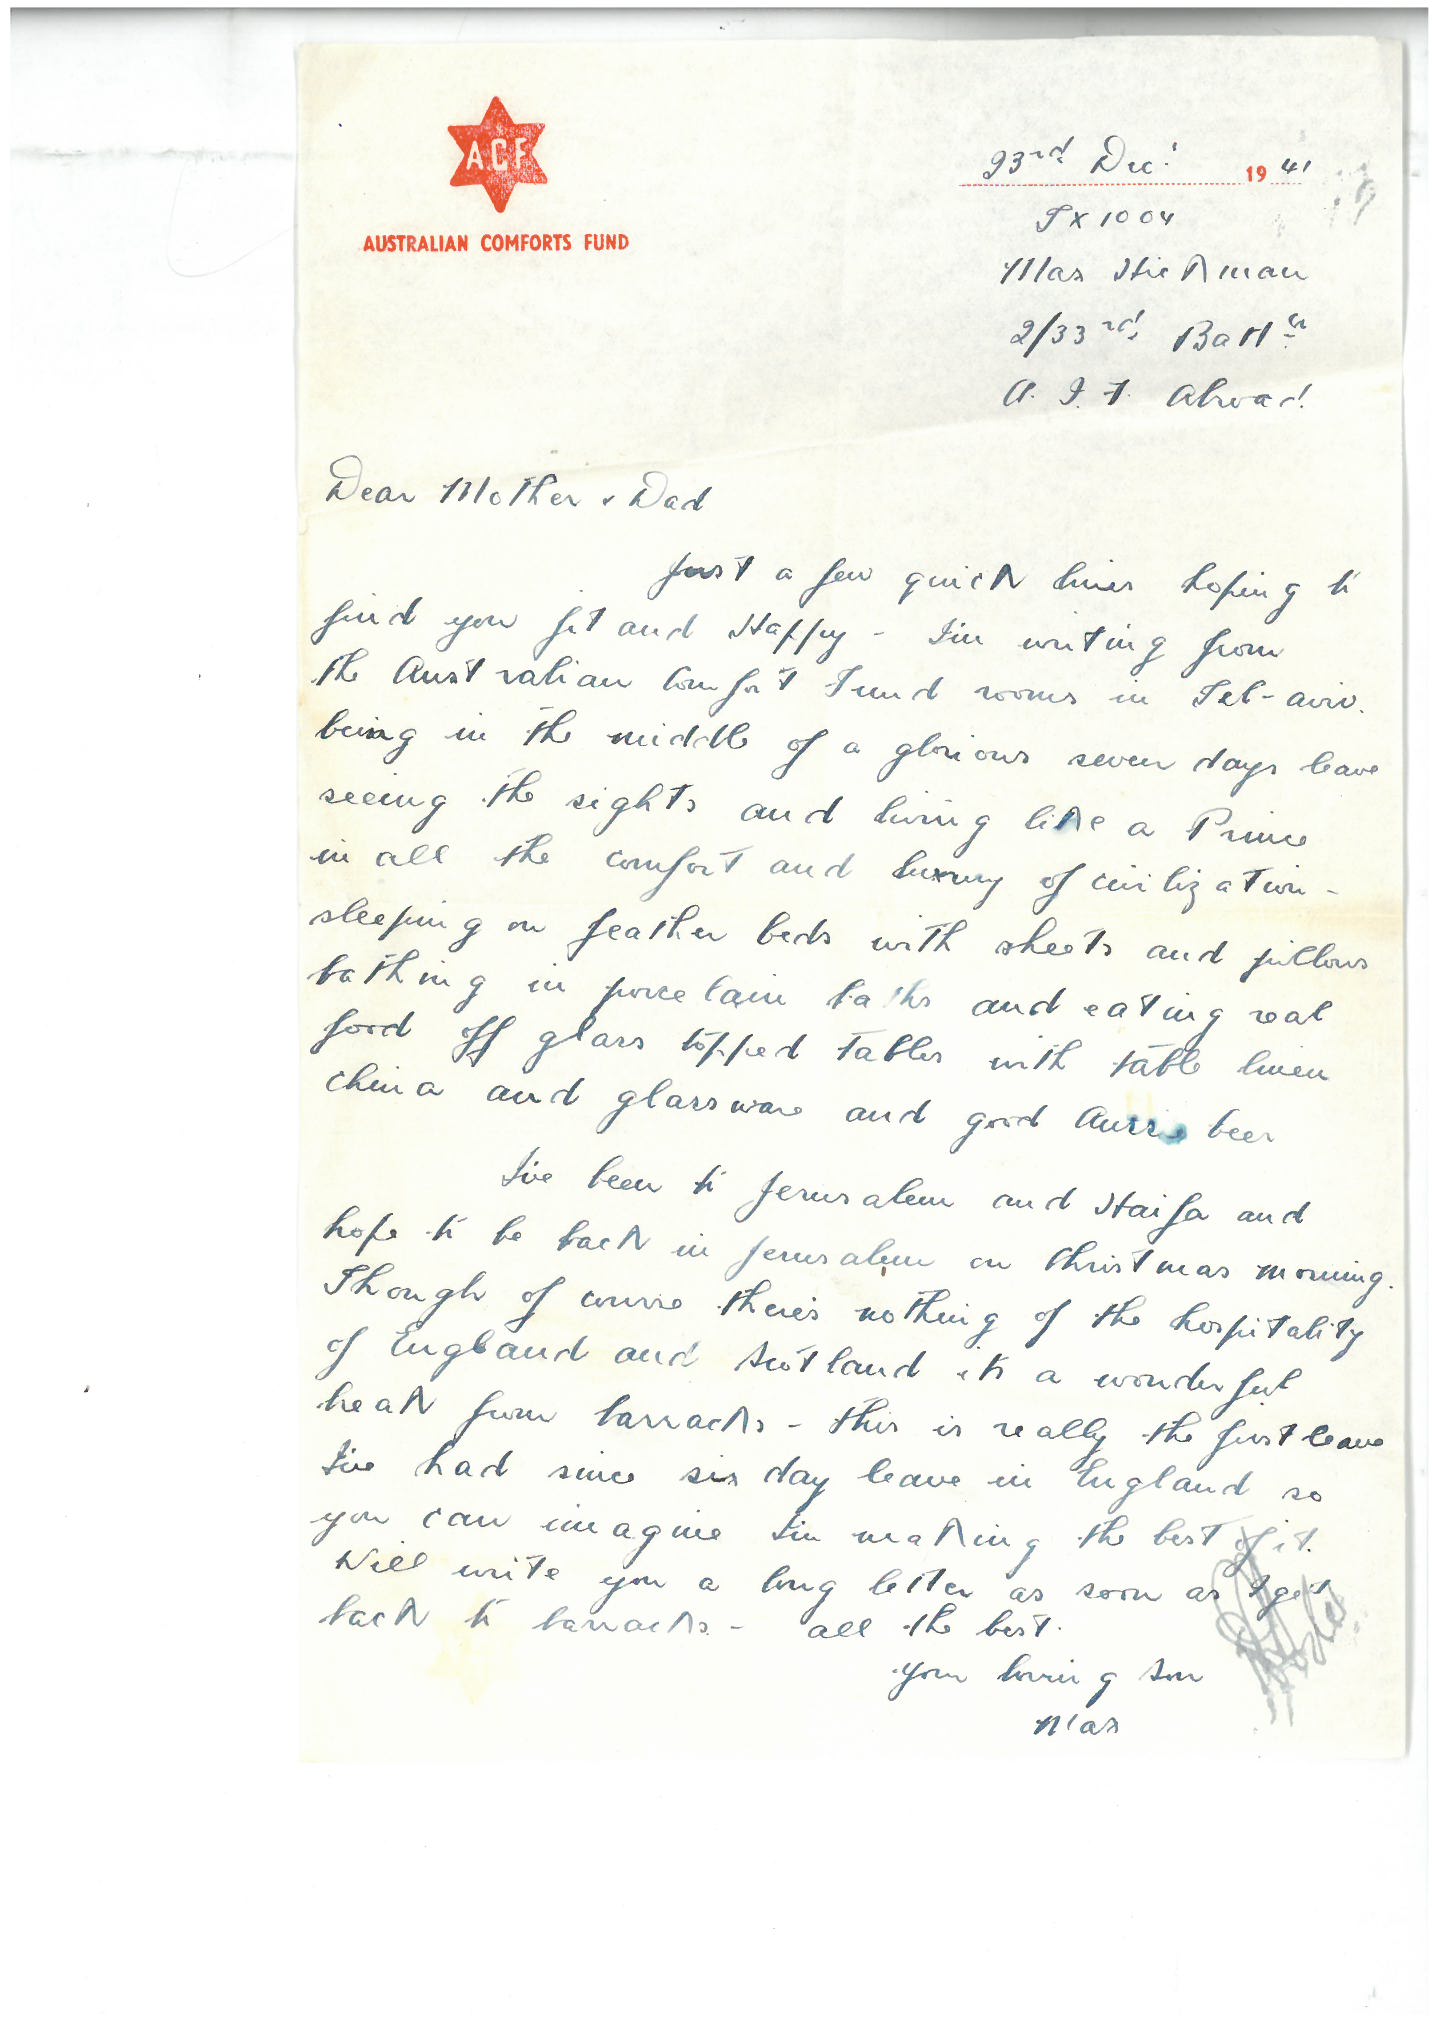 ACF
AUSTRALIAN COMFORTS FUND
23rd Dec. 1941
TX1004
Max Hickman
2/33rd Battn
A. I. F. Abroad.
Dear Mother & Dad
Just a few quick lines hoping to
find you fit and Happy - I'm writing from
the Australian Comfort Fund rooms in Tel-aviv.
being in the middle of a glorious seven days leave
seeing the sights and living like a Prince
in all the comfort and luxury of civilization -
sleeping on feather beds with sheets and pillows
bathing in porcelain baths and eating real
food off glass topped tables with table linen
china and glassware and good Aussie beer
I've been to Jerusalem and Haifa and
hope to be back in Jerusalem on Christmas morning.
Though of course there's nothing of the hospitality
of England and Scotland it's a wonderful
break from barracks - this is really the first leave
I've had since six day leave in England so
you can imagine I'm making the best of it.
Will write you a long letter as soon as I get
back to barracks - all the best.
your loving son
Max